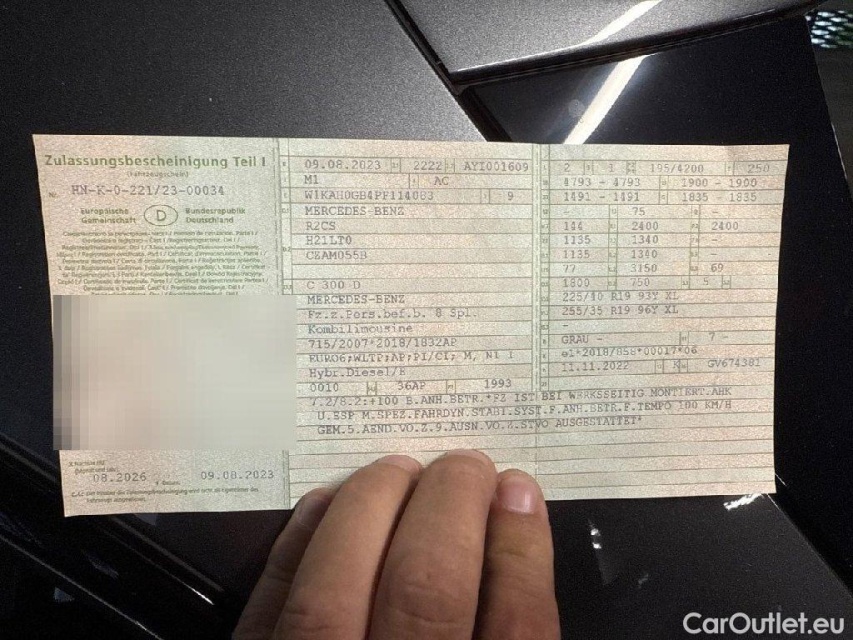 Zulassungsbescheinigung Teil I
(Fahrzeugschein)
Nr. HN-K-0-221/23-00034
Europäische Gemeinschaft D Bundesrepublik Deutschland
09.08.2023 2222 AYI001609
M1 AC
9
MERCEDES-BENZ
R2CS
H21LT0
CZAM055B
C 300 D
MERCEDES-BENZ
Fz.z.Pers.bef.b. 8 Spl.
Kombilimousine
715/2007*2018/1832AP
EURO6;WLTP;AP;PI/CI; M, N1 I
Hybr.Diesel/E
0010 36AP 1993
2 1 195/4200 250
4793 - 4793 1900 - 1900
1491 - 1491 1835 - 1835
- 75 -
144 2400 2400
1135 1340 -
1135 1340 -
77 3150 69
1800 750 5
225/40 R19 93Y XL
255/35 R19 96Y XL
-
GRAU 7 -
e1*2018/858*00017*06
11.11.2022 K GV674381
7.2/8.2:+100 B.ANH.BETR.*FZ IST BEI WERKSSEITIG MONTIERT.AHK
U.ESP M.SPEZ.FAHRDYN.STABI.SYST.F.ANH.BETR.F.TEMPO 100 KM/H
GEM.5.AEND.VO.Z.9.AUSN.VO.Z.STVO AUSGESTATTET*
08.2026 09.08.2023
CarOutlet.eu